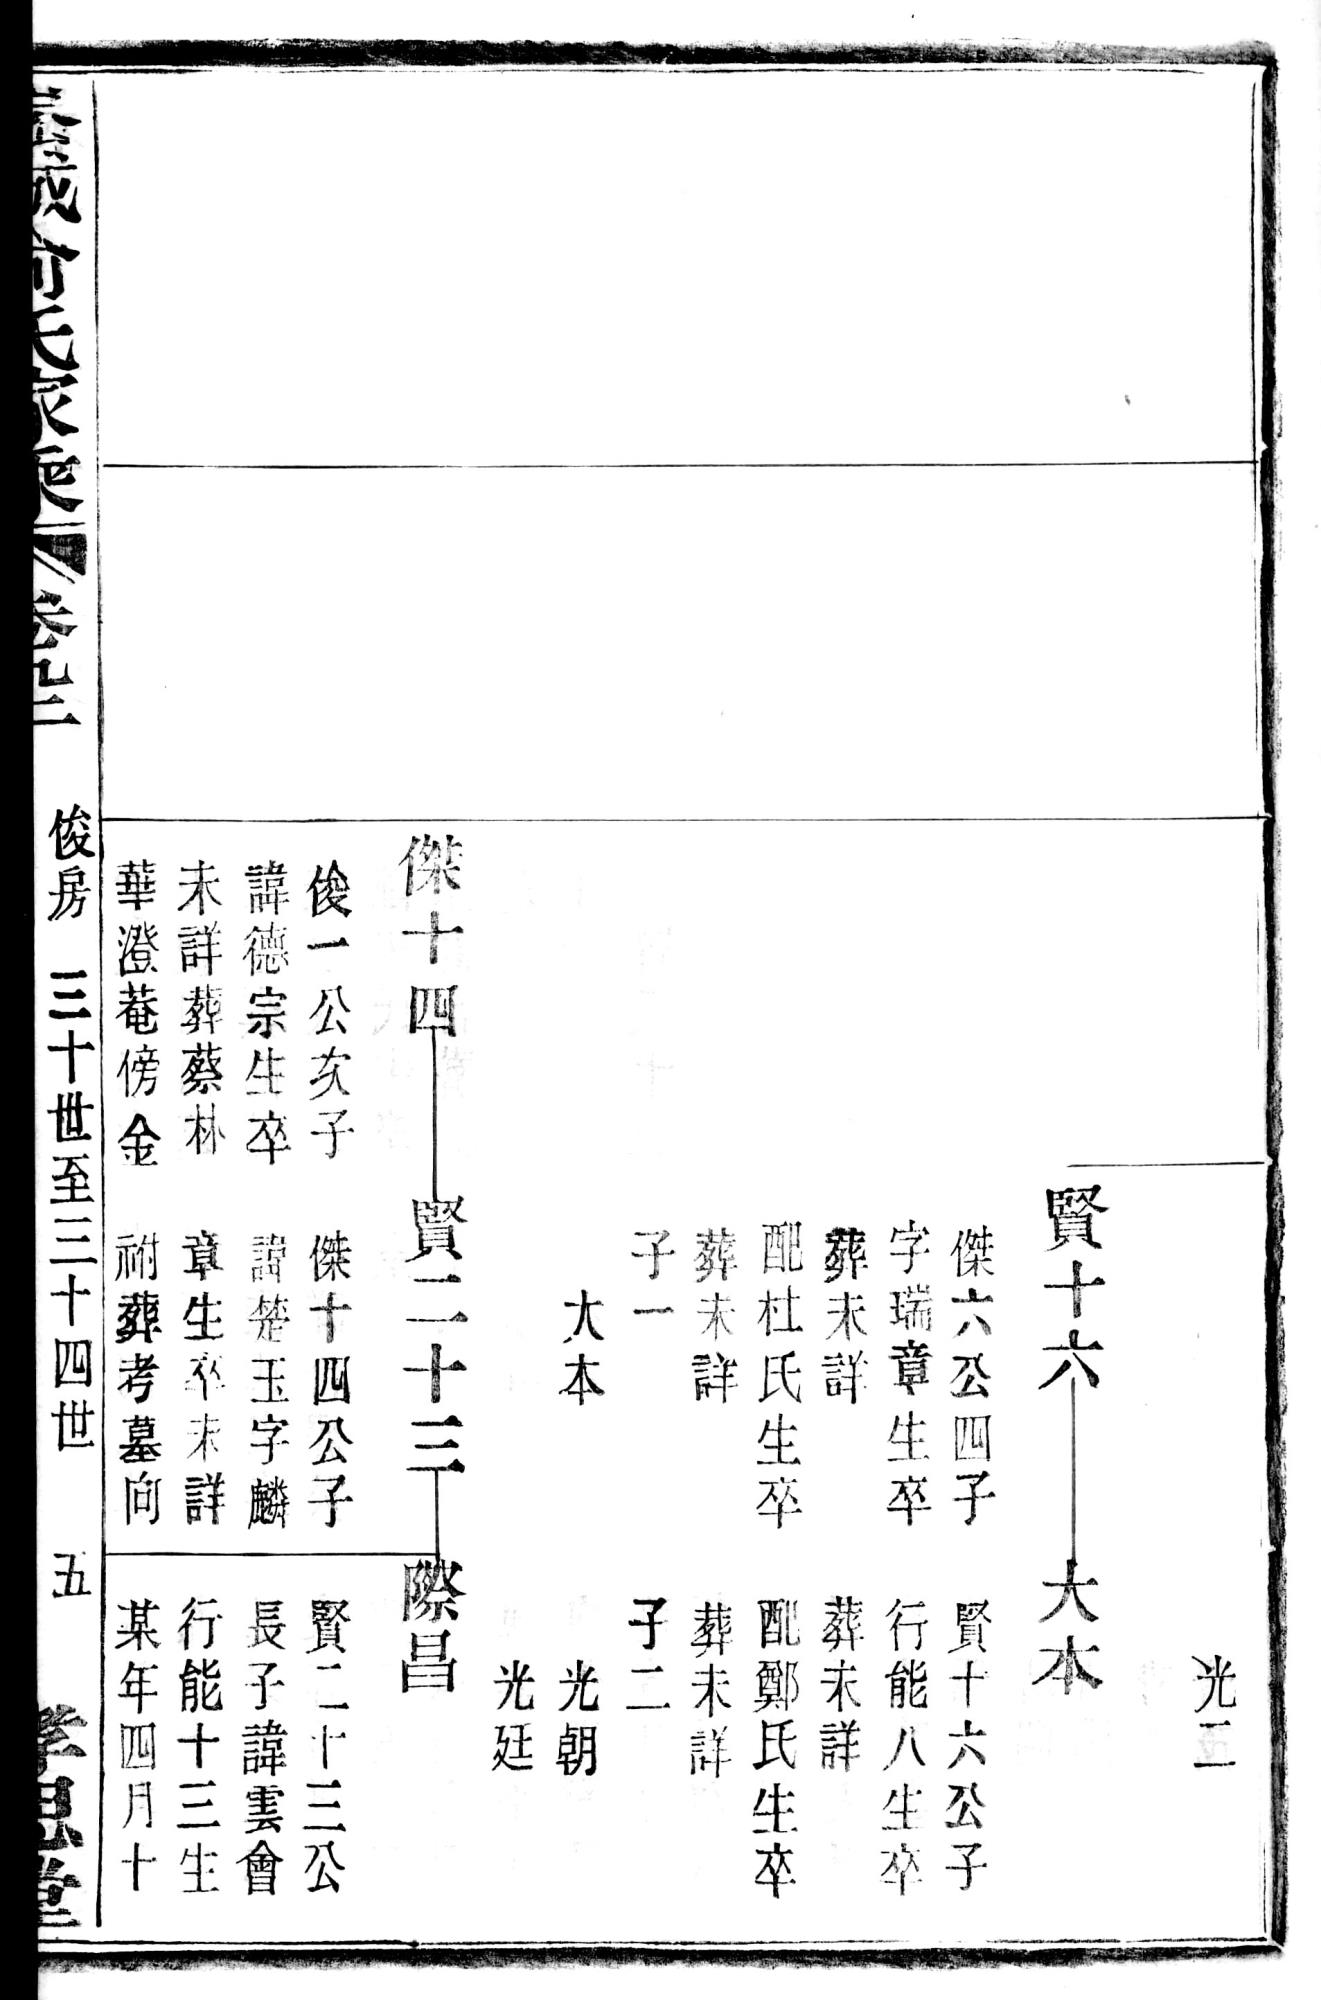 光二
賢十六
大本
傑六公四子
字瑞章生卒
葬未詳
配杜氏生卒
葬未詳
子一
大本
賢十六公子
行能八生卒
葬未詳
配鄭氏生卒
葬未詳
子二
光朝
光廷
傑十四
賢二十三
際昌
俊一公次子
諱德宗生卒
未詳葬蔡林
華澄菴傍金
傑十四公子
諱楚玉字麟
章生卒未詳
祔葬考墓向
賢二十三公
長子諱雲會
行能十三生
某年四月十
俞氏家乘 卷九二
俊房 三十世至三十四世 五
孝思堂